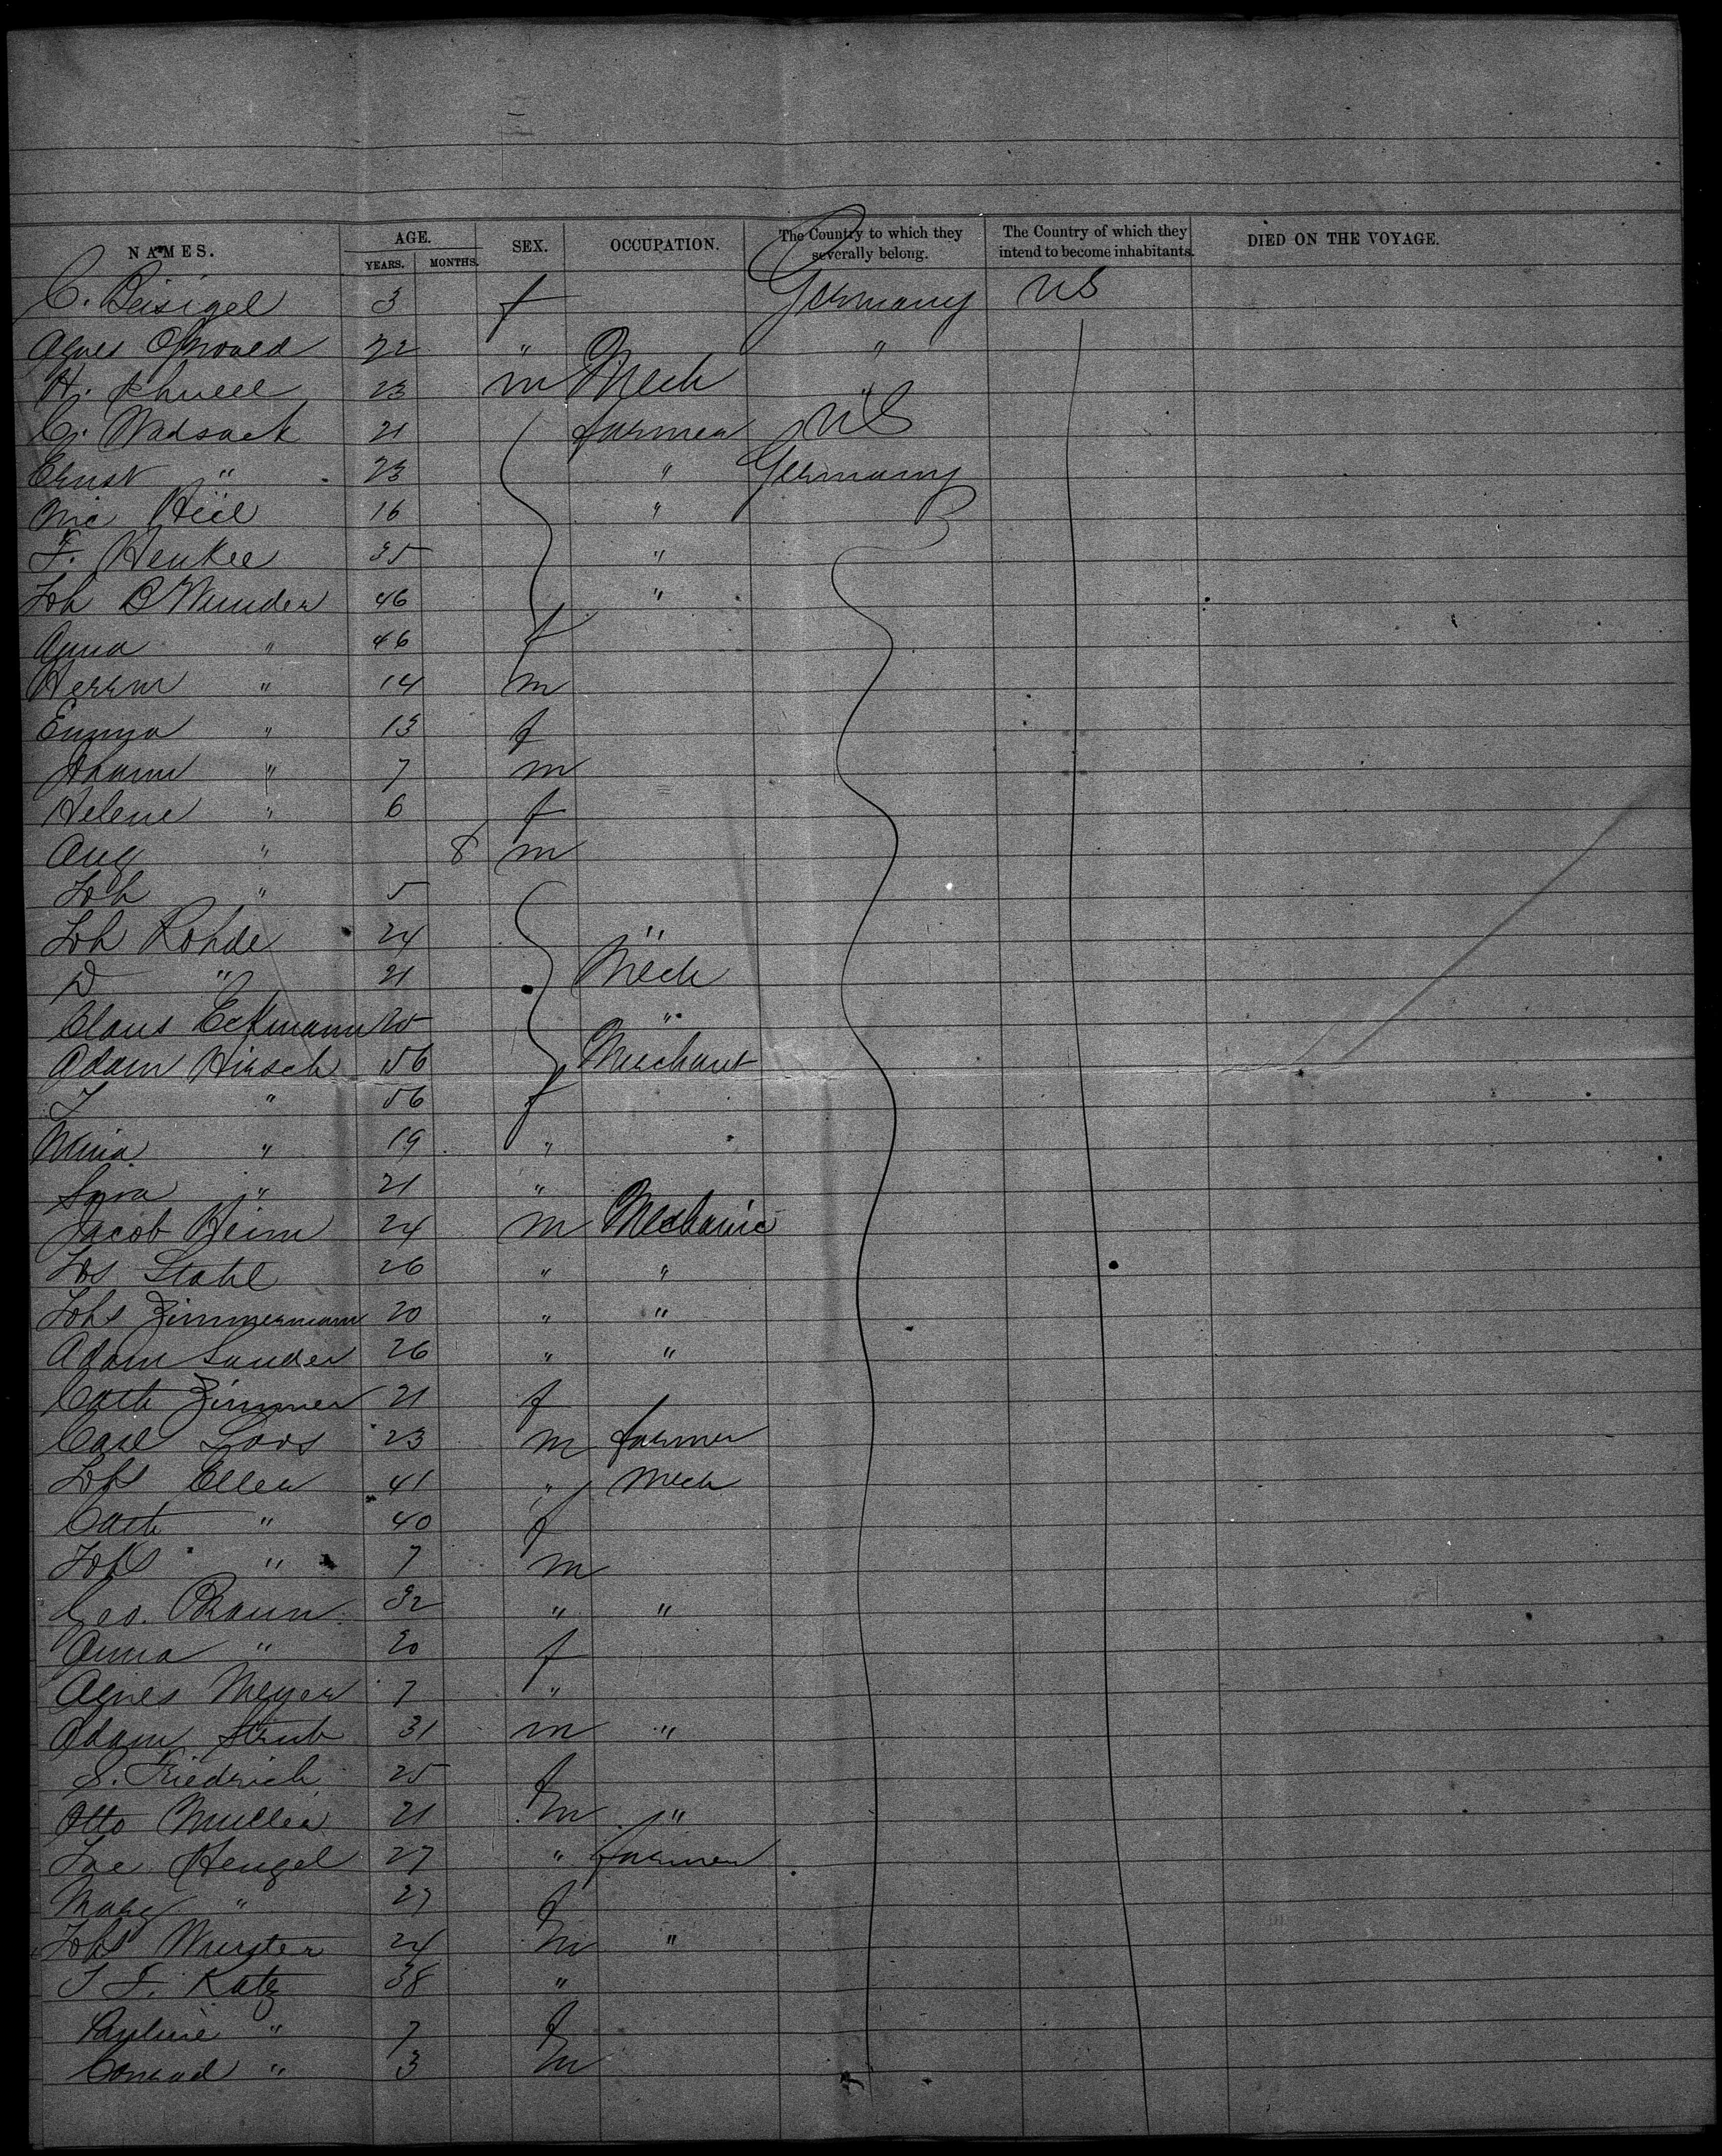 NAMES. AGE. SEX. OCCUPATION. The Country to which they severally belong. The Country of which they intend to become inhabitants. DIED ON THE VOYAGE.
YEARS. MONTHS.
C. Beisigel 3 f Germany US
Agnes 22 " "
H. Schnell 23 m Mech "
C. Wadsack 21 farmer US
Ernst " 23 " Germany
16 "
F. Henkel 35 "
Joh B Wunder 46 "
Anna " 46 f
Herrm " 14 m
Emma " 13 f
" 7 m
Helene " 6 f
Aug " 8 m
Joh " 5
Joh Rohde 24 "
D " 21 Mech
Claus Eckmann 25 "
Adam Hirsch 56 Merchant
" 56 f
Mina " 19 "
Sara " 21 "
Jacob Heim 24 m Mechanic
Jos Stahl 26 " "
Johs Zimmermann 20 " "
Adam Sander 26 " "
Cath Zimmer 21 f
Carl Loos 23 m farmer
Johs Eller 41 " Mech
Cath " 40 f
Johs " 7 m
Geo. Braun 32 " "
Anna " 30 f
Agnes Meyer 7 "
Adam Strub 31 m "
S. Friedrich 25 f
Otto Muller 21 m "
Jac Hengel 27 " farmer
Marg " 27 f
Johs Wurster 24 m "
J F. Katz 38 "
Pauline " 7 f
Conrad " 3 m